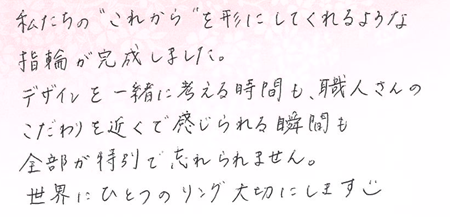 私たちの"これから"を形にしてくれるような
指輪が完成しました。
デザインを一緒に考える時間も、職人さんの
こだわりを近くで感じられる瞬間も
全部が特別で忘れられません。
世界にひとつのリング大切にします